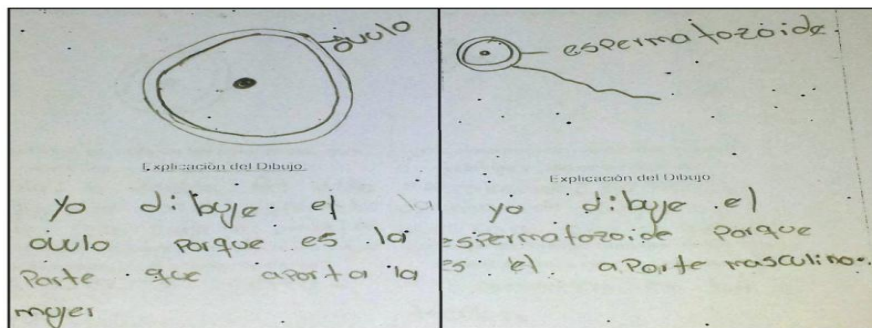 óvulo
Explicación del Dibujo
yo dibuje el la
óvulo porque es la
parte que aporta la
mujer
espermatozoide
Explicación del Dibujo
yo dibuje el
espermatozoide porque
es el aporte masculino.